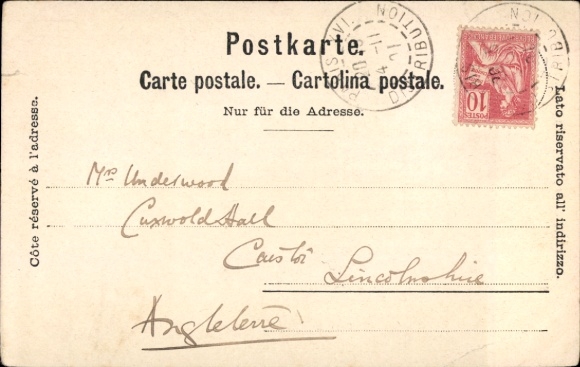 Postkarte.
Carte postale. — Cartolina postale.
Nur für die Adresse.
Côte réservé à l'adresse.
Lato riservato all' indirizzo.
DISTRIBUTION
POSTES
10
Mrs Underwood
Cuxwold Hall
Caistor
Lincolnshire
Angleterre